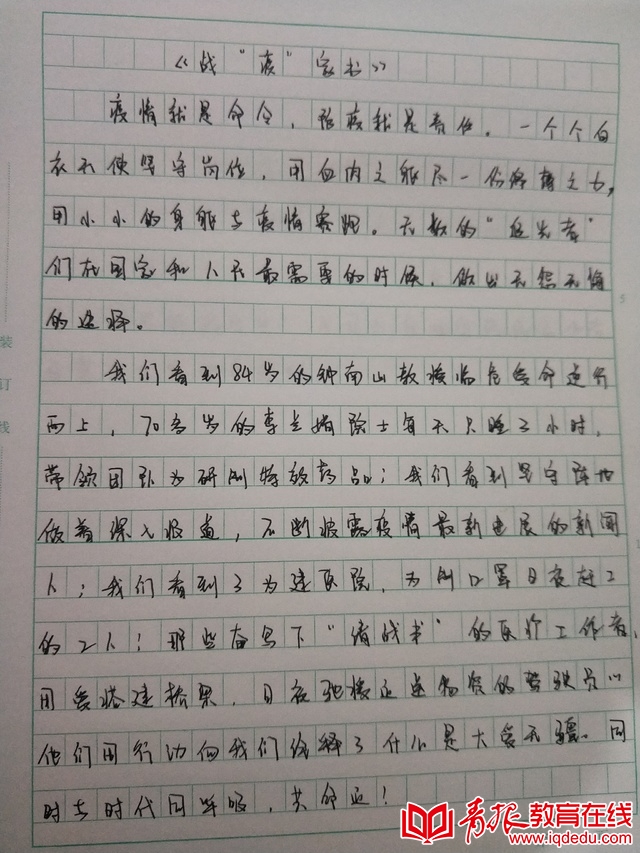 《战“疫”家书》
疫情就是命令，防疫就是责任。一个个白
衣天使坚守岗位，用血肉之躯尽一份绵薄之力，
用小小的身躯与疫情赛跑。无数的“逆光者”
们在国家和人民最需要的时候，做出无怨无悔
的选择。
我们看到84岁的钟南山教授临危受命逆行
而上，70多岁的李兰娟院士每天只睡3小时，
带领团队为研制特效药品；我们看到坚守阵地
做着深入报道，不断披露疫情最新进展的新闻
人；我们看到了为建医院，为制口罩日夜赶工
的工人；那些奋写下“请战书”的医疗工作者，
用爱搭建桥梁，日夜驰援运送物资的驾驶员……
他们用行动向我们诠释了什么是大爱无疆。同
时与时代同呼吸，共命运！
装
订
线
青报教育在线
www.iqdedu.com